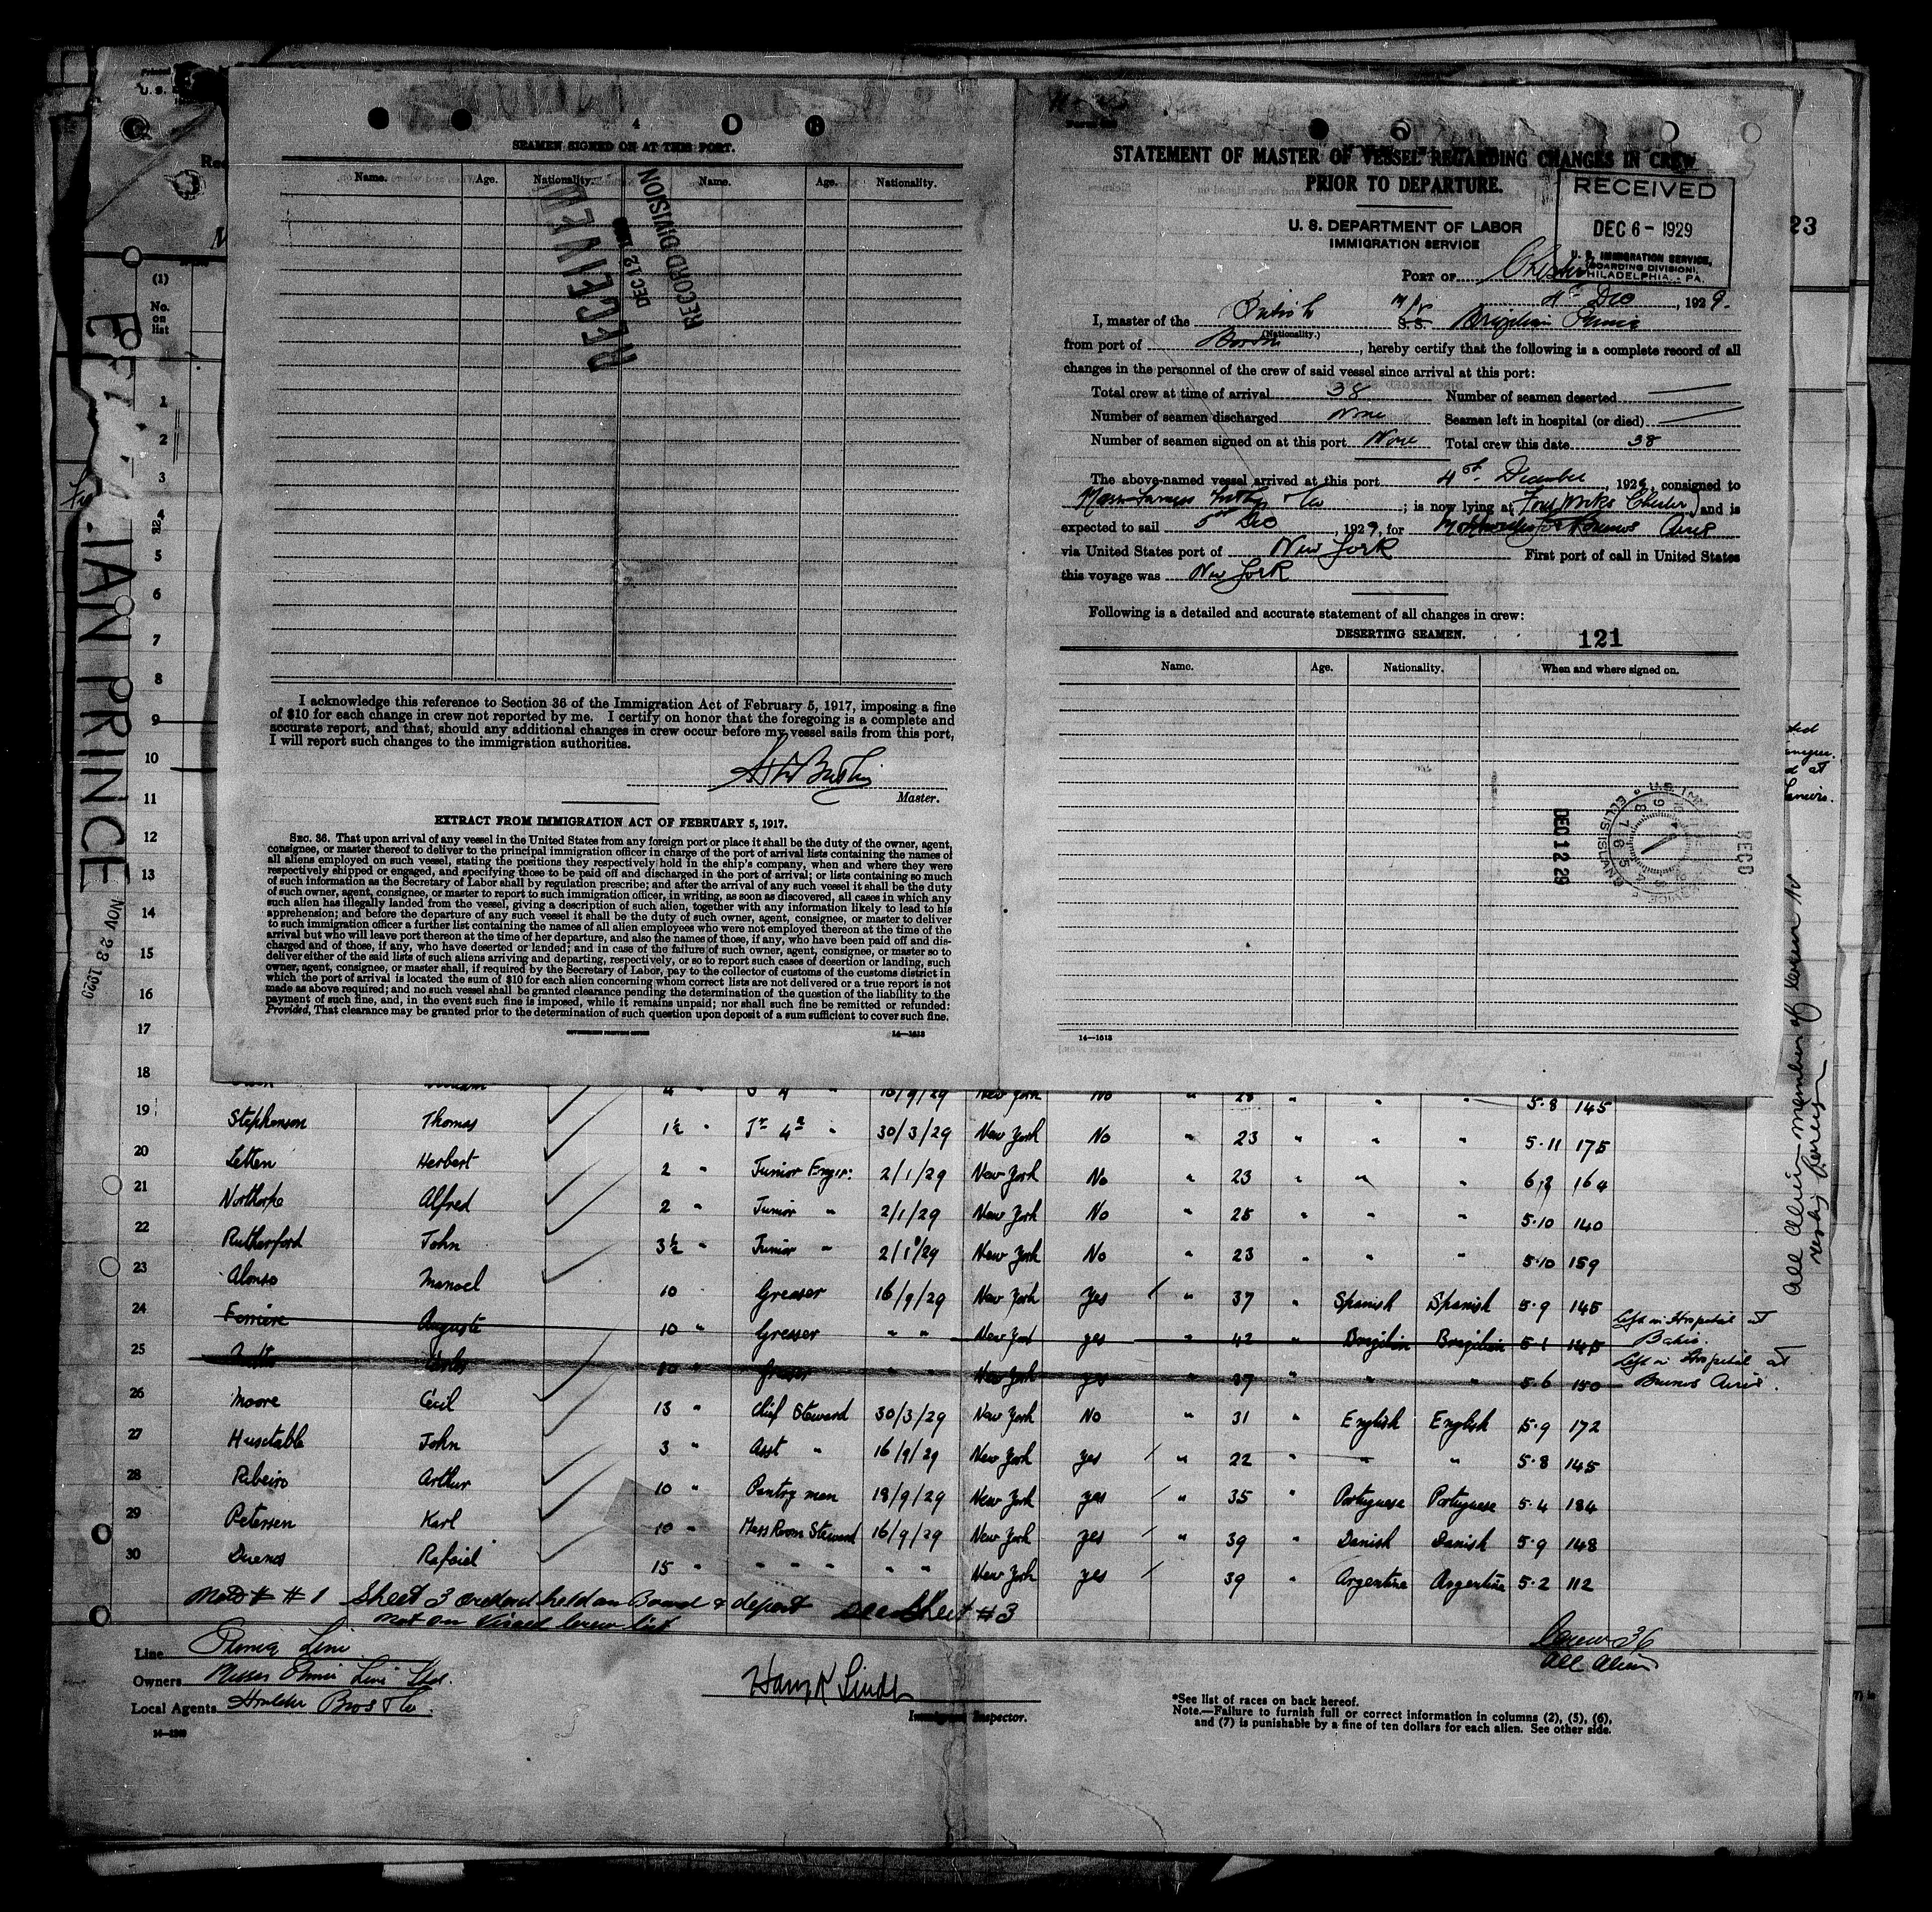 4
SEAMEN SIGNED ON AT THIS PORT.
Name. Age. Nationality. Name. Age. Nationality.
RECEIVED
DEC 12
RECORD DIVISION
I acknowledge this reference to Section 36 of the Immigration Act of February 5, 1917, imposing a fine
of $10 for each change in crew not reported by me. I certify on honor that the foregoing is a complete and
accurate report, and that, should any additional changes in crew occur before my vessel sails from this port,
I will report such changes to the immigration authorities.
Master.
EXTRACT FROM IMMIGRATION ACT OF FEBRUARY 5, 1917.
SEC. 36. That upon arrival of any vessel in the United States from any foreign port or place it shall be the duty of the owner, agent,
consignee, or master thereof to deliver to the principal immigration officer in charge of the port of arrival lists containing the names of
all aliens employed on such vessel, stating the positions they respectively hold in the ship's company, when and where they were
respectively shipped or engaged, and specifying those to be paid off and discharged in the port of arrival; or lists containing so much
of such information as the Secretary of Labor shall by regulation prescribe; and after the arrival of any such vessel it shall be the duty
of such owner, agent, consignee, or master to report to such immigration officer, in writing, as soon as discovered, all cases in which any
such alien has illegally landed from the vessel, giving a description of such alien, together with any information likely to lead to his
apprehension; and before the departure of any such vessel it shall be the duty of such owner, agent, consignee, or master to deliver
to such immigration officer a further list containing the names of all alien employees who were not employed thereon at the time of the
arrival but who will leave port thereon at the time of her departure, and also the names of those, if any, who have been paid off and dis-
charged and of those, if any, who have deserted or landed; and in case of the failure of such owner, agent, consignee, or master so to
deliver either of the said lists of such aliens arriving and departing, respectively, or so to report such cases of desertion or landing, such
owner, agent, consignee, or master shall, if required by the Secretary of Labor, pay to the collector of customs of the customs district in
which the port of arrival is located the sum of $10 for each alien concerning whom correct lists are not delivered or a true report is not
made as above required; and no such vessel shall be granted clearance pending the determination of the question of the liability to the
payment of such fine, and, in the event such fine is imposed, while it remains unpaid; nor shall such fine be remitted or refunded:
Provided, That clearance may be granted prior to the determination of such question upon deposit of a sum sufficient to cover such fine.
GOVERNMENT PRINTING OFFICE 14—1613
STATEMENT OF MASTER OF VESSEL REGARDING CHANGES IN CREW
PRIOR TO DEPARTURE.
RECEIVED
DEC 6 - 1929
U. S. IMMIGRATION SERVICE,
(BOARDING DIVISION)
PHILADELPHIA - PA.
U. S. DEPARTMENT OF LABOR
IMMIGRATION SERVICE
PORT OF Chester
4th Dec, 1929.
I, master of the British M/V S.S. Brazilian Prince
(Nationality.)
from port of Boston, hereby certify that the following is a complete record of all
changes in the personnel of the crew of said vessel since arrival at this port:
Total crew at time of arrival 38 Number of seamen deserted —
Number of seamen discharged None Seamen left in hospital (or died) —
Number of seamen signed on at this port None Total crew this date 38
The above-named vessel arrived at this port 4th December, 1929, consigned to
; is now lying at Ford Works Chester and is
expected to sail 5th Dec, 1929, for Buenos Aires
via United States port of New York First port of call in United States
this voyage was New York
Following is a detailed and accurate statement of all changes in crew:
DESERTING SEAMEN.
121
Name. Age. Nationality. When and where signed on.
DEC 12 29
REC'D
14—1613
23
(1)
No. on list
IAN PRINCE
NOV 23 1929
1
2
3
4
5
6
7
8
9
10
11
12
13
14
15
16
17
18 5.8 145
19 Stephenson Thomas 1½ " Jr 4th " 30/3/29 New York No " 23 " " " 5.11 175
20 Letten Herbert 2 " Junior Engr: 2/1/29 New York No " 23 " " " 164
21 Northorpe Alfred 2 " Junior " 2/1/29 New York No " 25 " " " 5.10 140
22 Rutherford John 3½ " Junior " 2/1/29 New York No " 23 " " " 5.10 159
23 Alonso Manoel 10 Greaser 16/9/29 New York Yes " 37 " Spanish Spanish 5.9 145
24 Ferriere Auguste 10 " Greaser " " New York yes " 42 " Brazilian Brazilian 5.1 145 Left in Hospital at Bahia.
25 10 " Greaser " " New York yes " 37 " " " 5.6 150 Left in Hospital at Buenos Aires.
26 Moore Cecil 13 " Chief Steward 30/3/29 New York No " 31 " English English 5.9 172
27 Huxtable John 3 " Asst " 16/9/29 New York yes " 22 " " " 5.8 145
28 Ribeiro Arthur 10 " Pantry man 18/9/29 New York yes " 35 " Portuguese Portuguese 5.4 184
29 Petersen Karl 10 " Mess Room Steward 16/9/29 New York yes " 39 " Danish Danish 5.9 148
30 Rafaiel 15 " " " " " " New York yes 39 " Argentine Argentine 5.2 112
# 1 Sheet 3 ordered held on Board & deport see sheet #3
not on Visaed crew list
All Aliens members of crew
Crew 36
All Aliens
Line Prince Line
Owners Messrs Prince Line Ltd.
Local Agents Houlder Bros & Co.
14—1240
Immigrant Inspector.
*See list of races on back hereof.
Note.—Failure to furnish full or correct information in columns (2), (5), (6),
and (7) is punishable by a fine of ten dollars for each alien. See other side.